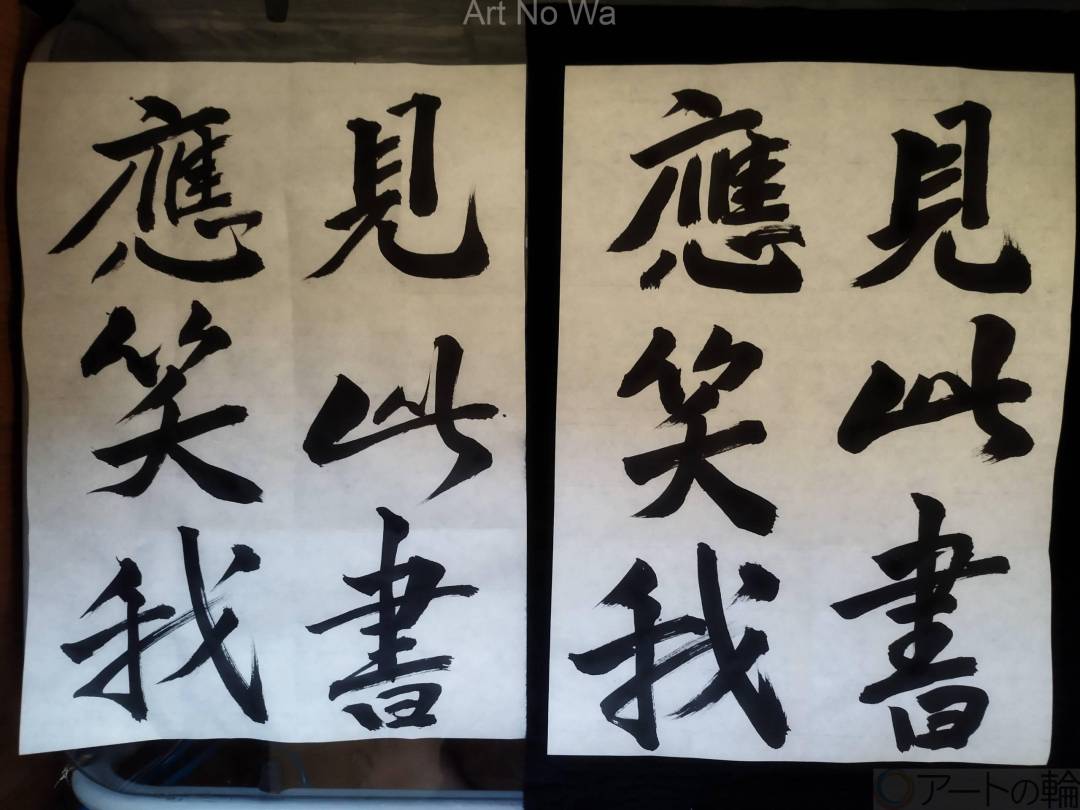 Art No Wa
見此書
應笑我
見此書
應笑我
アートの輪